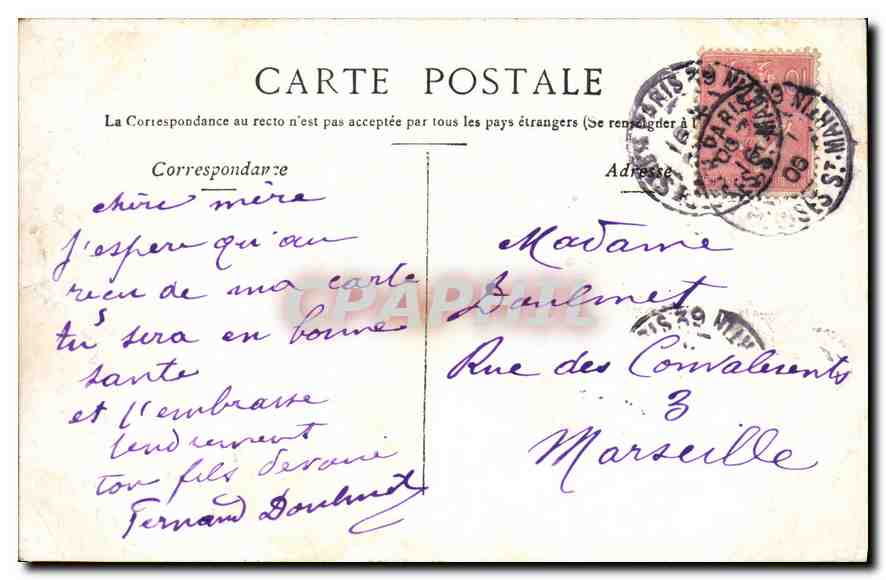 CARTE POSTALE
La Correspondance au recto n'est pas acceptée par tous les pays étrangers (Se renseigner à l
Correspondance
chère mère
J'espere qu'au
recu de ma carte
tu sera en bonne
sante
et t'embrasse
tendrement
ton fils devoué
Fernand Doulmet
Adresse
Madame
Doulmet
Rue des Convalesents
3
Marseille
PARIS 39
ST MAR
06
10
CPAPHIL